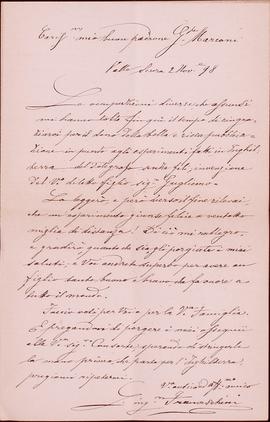 Car.mo mio buon padrone G. Marconi
Valle Secca 2 Nov. 98
Le occupazioni diverse che
mi hanno tolto fin qui il tempo di ringra
ziarvi per il dono della bella e pubblica
zione in quanto agli esperimenti fatti in Inghil
terra del Telegrafo senza fili, invenzione
del V. diletto figlio sig. Guglielmo.
La leggerò, e però diverse volte rilevai,
che un esperimento giunse felice a ventotto
miglia di distanza! Di ciò mi rallegro,
e gradirò quando he Sia gli porgiate i miei
saluti, e Voi andrete superbo per avere un
figlio tanto buono e bravo da far onore a
tutto il mondo.
Faccio voti per Voi e per la V. Famiglia.
E pregandovi di porgere i miei ossequi
alla V. sig. Consorte, sperando di stringerle
la mano prima, che parta per l'Inghilterra,
pregiomi ripetermi.
V.
Ing.